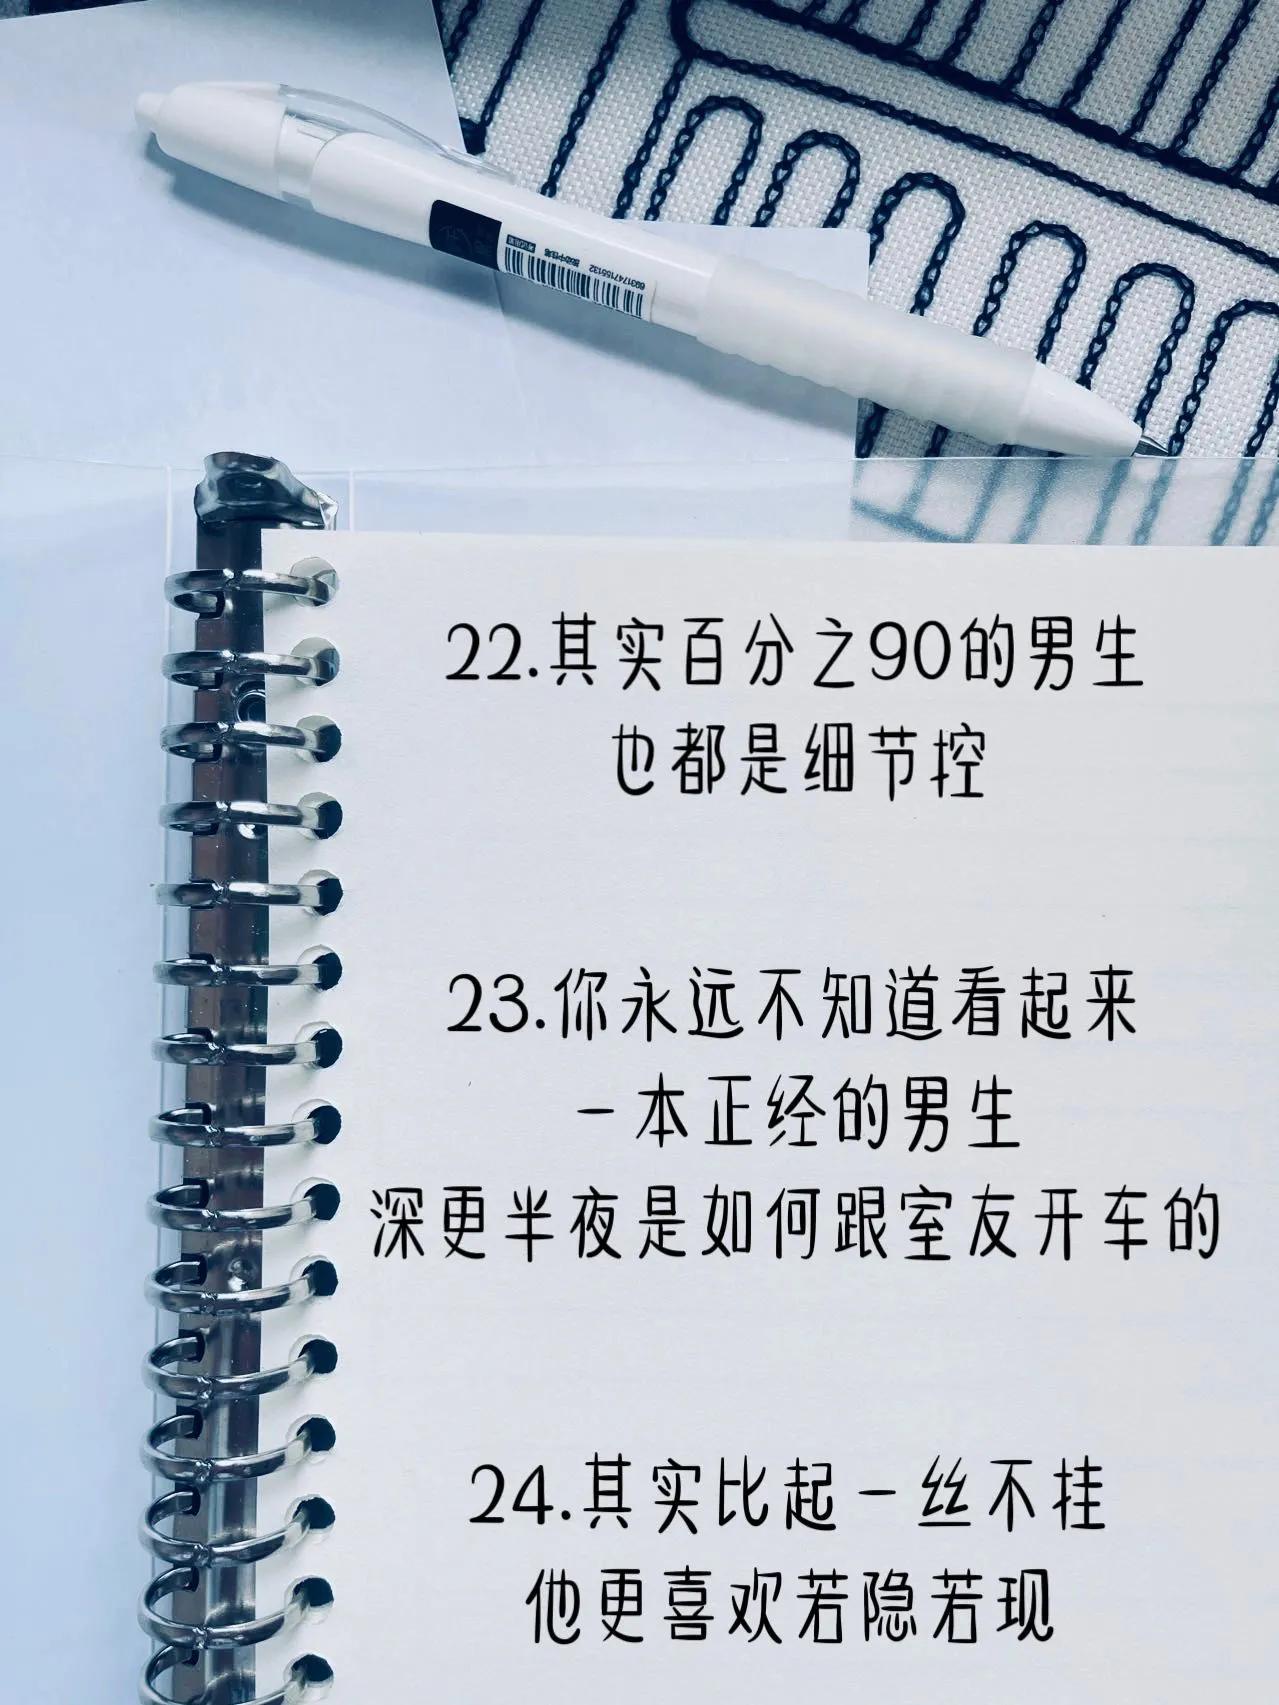 6931747155132
22.其实百分之90的男生
也都是细节控
23.你永远不知道看起来
一本正经的男生
深更半夜是如何跟室友开车的
24.其实比起一丝不挂
他更喜欢若隐若现